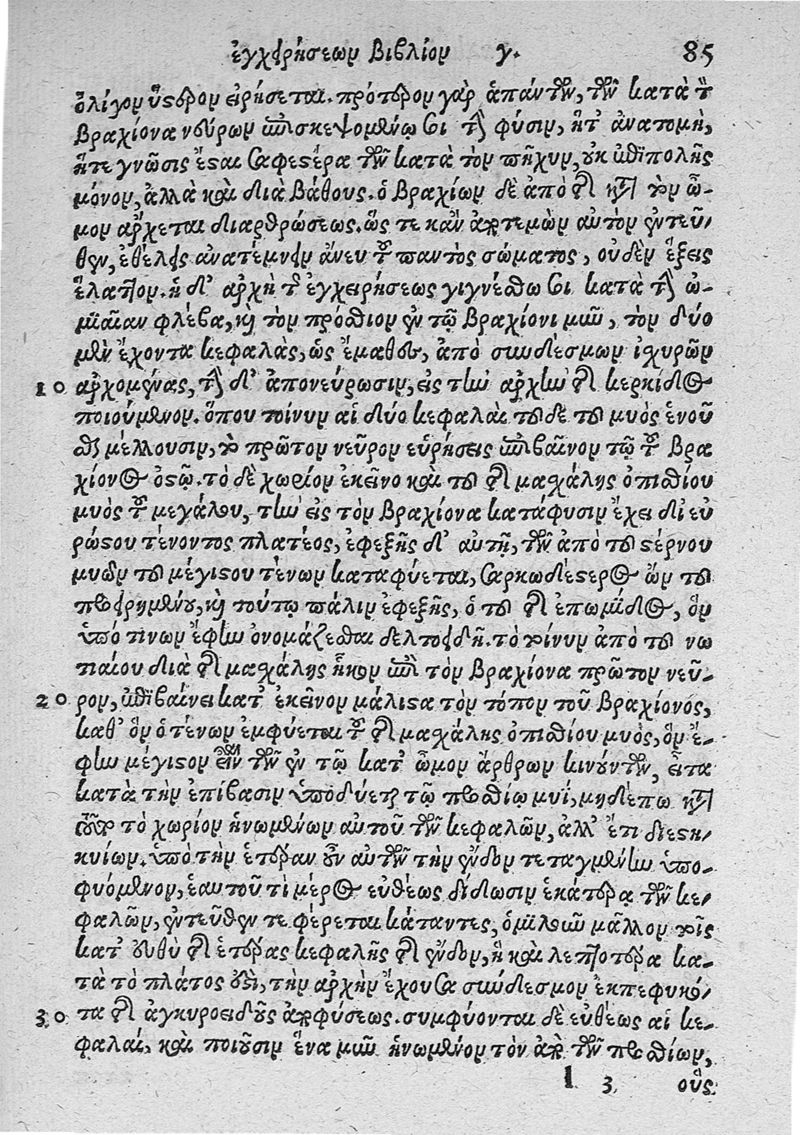 ἐγχειρήσεων βιβλίον γ. 85
ὀλίγον ὕστερον εἰρήσεται. πρότερον γὰρ ἁπάντων, τῶν κατὰ τὸ
βραχίονα νεύρων ἐπισκεψομένῳ σοι τὴν φύσιν, ἥτ' ἀνατομὴ,
ἥτε γνῶσις ἔσται σαφεστέρα τῶν κατὰ τὸν πῆχυν, οὐκ ἐπιπολῆς
μόνον, ἀλλὰ καὶ διὰ βάθους. ὁ βραχίων δὲ ἀπὸ τῆς κατὰ τὸν ὦ-
μον ἄρχεται διαρθρώσεως. ὥς τε κἂν ἀρτεμὼν αὐτὸν ἐντεῦ-
θεν, ἐθέλῃς ἀνατέμνειν ἄνευ τοῦ παντὸς σώματος, οὐδὲν ἕξεις
ἔλαττον. ἡ δ' ἀρχὴ τῆς ἐγχειρήσεως γιγνέσθω σοι κατὰ τὴν ὠ-
μιαίαν φλέβα, καὶ τὸν πρόσθιον ἐν τῷ βραχίονι μῦν, τὸν δύο
μὲν ἔχοντα κεφαλὰς, ὡς ἔμαθες, ἀπὸ συνδέσμων ἰσχυρῶν
10 ἀρχομένας, τὴν δ' ἀπονεύρωσιν, εἰς τὴν ἀρχὴν τῆς κερκίδος
ποιούμενον. ὅπου τοίνυν αἱ δύο κεφαλαὶ τοῦδε τοῦ μυὸς ἑνοῦ
σθαι μέλλουσιν, τὸ πρῶτον νεῦρον εὑρήσεις ἐπιβαῖνον τῷ τοῦ βρα
χίονος ὀστῷ. τὸ δὲ χωρίον ἐκεῖνο καὶ τοῦ τῆς μασχάλης ὀπισθίου
μυὸς τοῦ μεγάλου, τὴν εἰς τὸν βραχίονα κατάφυσιν ἔχει δι' εὐ
ρώστου τένοντος πλατέος, ἐφεξῆς δ' αὐτῇ, τῶν ἀπὸ τοῦ στέρνου
μυῶν τοῦ μεγίστου τένων καταφύεται, σαρκωδέστερος ὢν τοῦ
προειρημένου, καὶ τούτῳ πάλιν ἐφεξῆς, ὁ τοῦ τῆς ἐπωμίδος, ὃν
ὑπό τινων ἔφην ὀνομάζεσθαι δελτοειδῆ. τὸ τοίνυν ἀπὸ τοῦ νω
τιαίου διὰ τῆς μασχάλης ἧκον ἐπὶ τὸν βραχίονα πρῶτον νεῦ-
20 ρον, ἐπιβαίνει κατ' ἐκεῖνον μάλιστα τὸν τόπον τοῦ βραχίονός,
καθ' ὃν ὁ τένων ἐμφύεται τοῦ τῆς μασχάλης ὀπισθίου μυὸς, ὃν ἔ-
φην μέγιστον εἶναι τῶν ἐν τῷ κατ' ὦμον ἄρθρων κινούντων, εἶτα
κατὰ τὴν ἐπίβασιν ὑποδύεται τῷ προσθίῳ μυΐ, μηδέπω κατὰ
τοῦτο τὸ χωρίον ἡνωμένων αὐτοῦ τῶν κεφαλῶν, ἀλλ' ἔτι διεστη-
κυίων. ὑπὸ τὴν ἑτέραν οὖν αὐτῶν τὴν ἔνδον τεταγμένην ὑπο-
φυόμενον, ἑαυτοῦ τὶ μέρος εὐθέως δίδωσιν ἑκάτερα τῶν κε-
φαλῶν, ἐντεῦθεν τε φέρεται κάταντες, ὁμιλοῦν μᾶλλον τοῖς
κατ' εὐθὺ τῆς ἑτέρας κεφαλῆς τῆς ἔνδον, ἣ καὶ λεπτοτέρα κα-
τὰ τὸ πλάτος ἐστὶ, τὴν ἀρχὴν ἔχουσα σύνδεσμον ἐκπεφυκό-
30 τα τῆς ἀγκυροειδοῦς ἀποφύσεως. συμφύονται δὲ εὐθέως αἱ κε-
φαλαί, καὶ ποιοῦσιν ἕνα μῦν ἡνωμένον τὸν ἀπὸ τῶν προσθίων,
l 3 οὓς